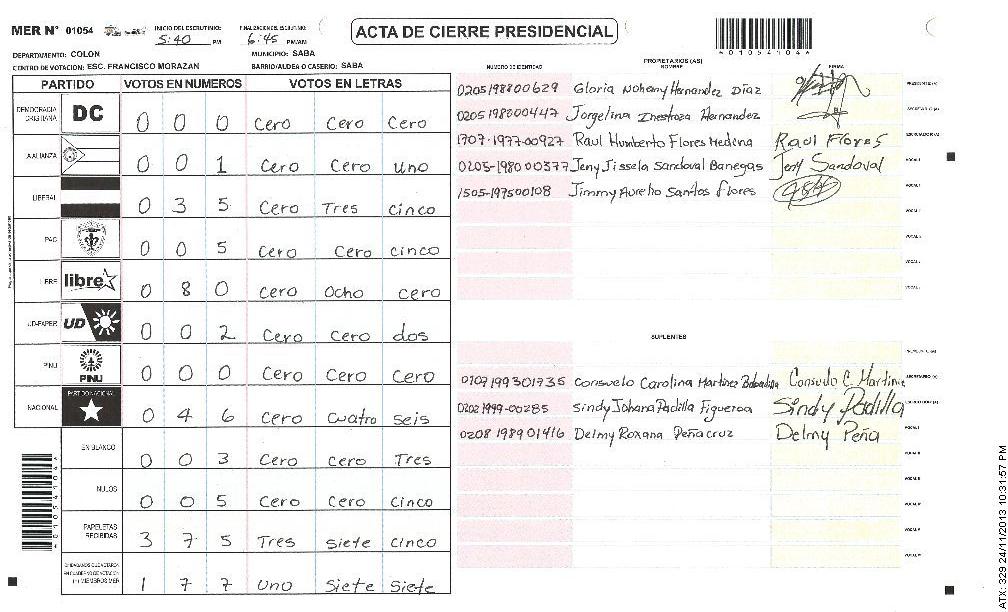 MER N° 01054 INICIO DEL ESCRUTINIO: 5:40 PM FINALIZACION DEL ESCRUTINIO: 6:45 PM/AM
ACTA DE CIERRE PRESIDENCIAL
40105404
DEPARTAMENTO: COLON MUNICIPIO: SABA
CENTRO DE VOTACION: ESC. FRANCISCO MORAZAN BARRIO/ALDEA O CASERIO: SABA
PARTIDO VOTOS EN NUMEROS VOTOS EN LETRAS
DEMOCRACIA CRISTIANA DC 0 0 0 Cero Cero Cero
ALIANZA 0 0 1 Cero Cero uno
LIBERAL 0 3 5 Cero Tres cinco
PAC 0 0 5 Cero Cero cinco
LIBRE libre 0 8 0 Cero Ocho cero
UD-FAPER UD 0 0 2 Cero Cero dos
PINU PINU 0 0 0 Cero Cero Cero
NACIONAL PARTIDO NACIONAL 0 4 6 Cero Cuatro seis
EN BLANCO 0 0 3 Cero Cero Tres
NULOS 0 0 5 Cero Cero Cinco
PAPELETAS RECIBIDAS 3 7 5 Tres siete cinco
(+) MIEMBROS MER 1 7 7 Uno Siete Siete
PROPIETARIOS (AS)
NUMERO DE IDENTIDAD NOMBRE FIRMA
0205198800629 Gloria Nohemy Hernandez Diaz
0205198000447 Jorgelina Inestroza Hernandez
1707-1977-00927 Raul Humberto Flores Medina Raul Flores
0205-1980 00377 Jeny Jissela Sandoval Banegas Jeny Sandoval
1505-197500108 Jimmy Aurelio Santos Flores
SUPLENTES
0107199301735 Consuelo Carolina Martinez Consuelo C. Martinez
0202 1999-00285 Sindy Johana Padilla Figueroa Sindy Padilla
0208 198901416 Delmy Roxana Peña cruz Delmy Peña
ATX: 329 24/11/2013 10:31:57 PM